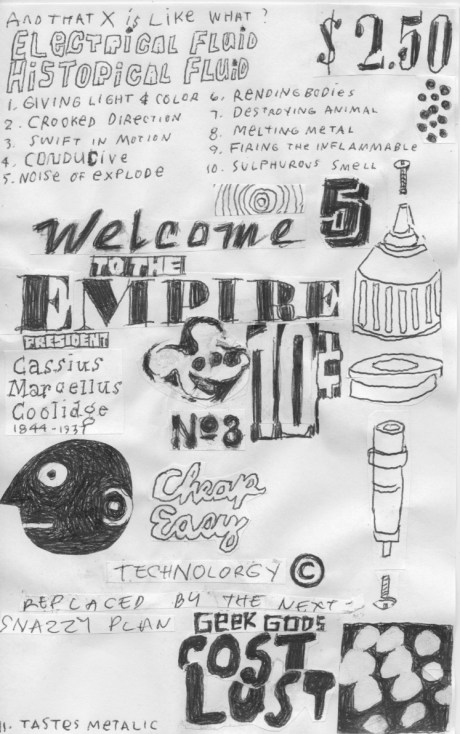 AND THAT X is LIKE WHAT?
ELECTRICAL FLUID
HISTORICAL FLUID
$2.50
1. GIVING LIGHT & COLOR
2. CROOKED DIRECTION
3. SWIFT IN MOTION
4. CONDUCIVE
5. NOISE OF EXPLODE
6. RENDING BODIES
7. DESTROYING ANIMAL
8. MELTING METAL
9. FIRING THE INFLAMMABLE
10. SULPHUROUS SMELL
5
Welcome
TO THE
EMPIRE
PRESIDENT
Cassius
Marcellus
Coolidge
1844-193
10¢
No 8
Cheap
Easy
TECHNOLORGY ©
REPLACED BY THE NEXT
SNAZZY PLAN
GEEK GODS
COST
LUST
11. TASTES METALIC